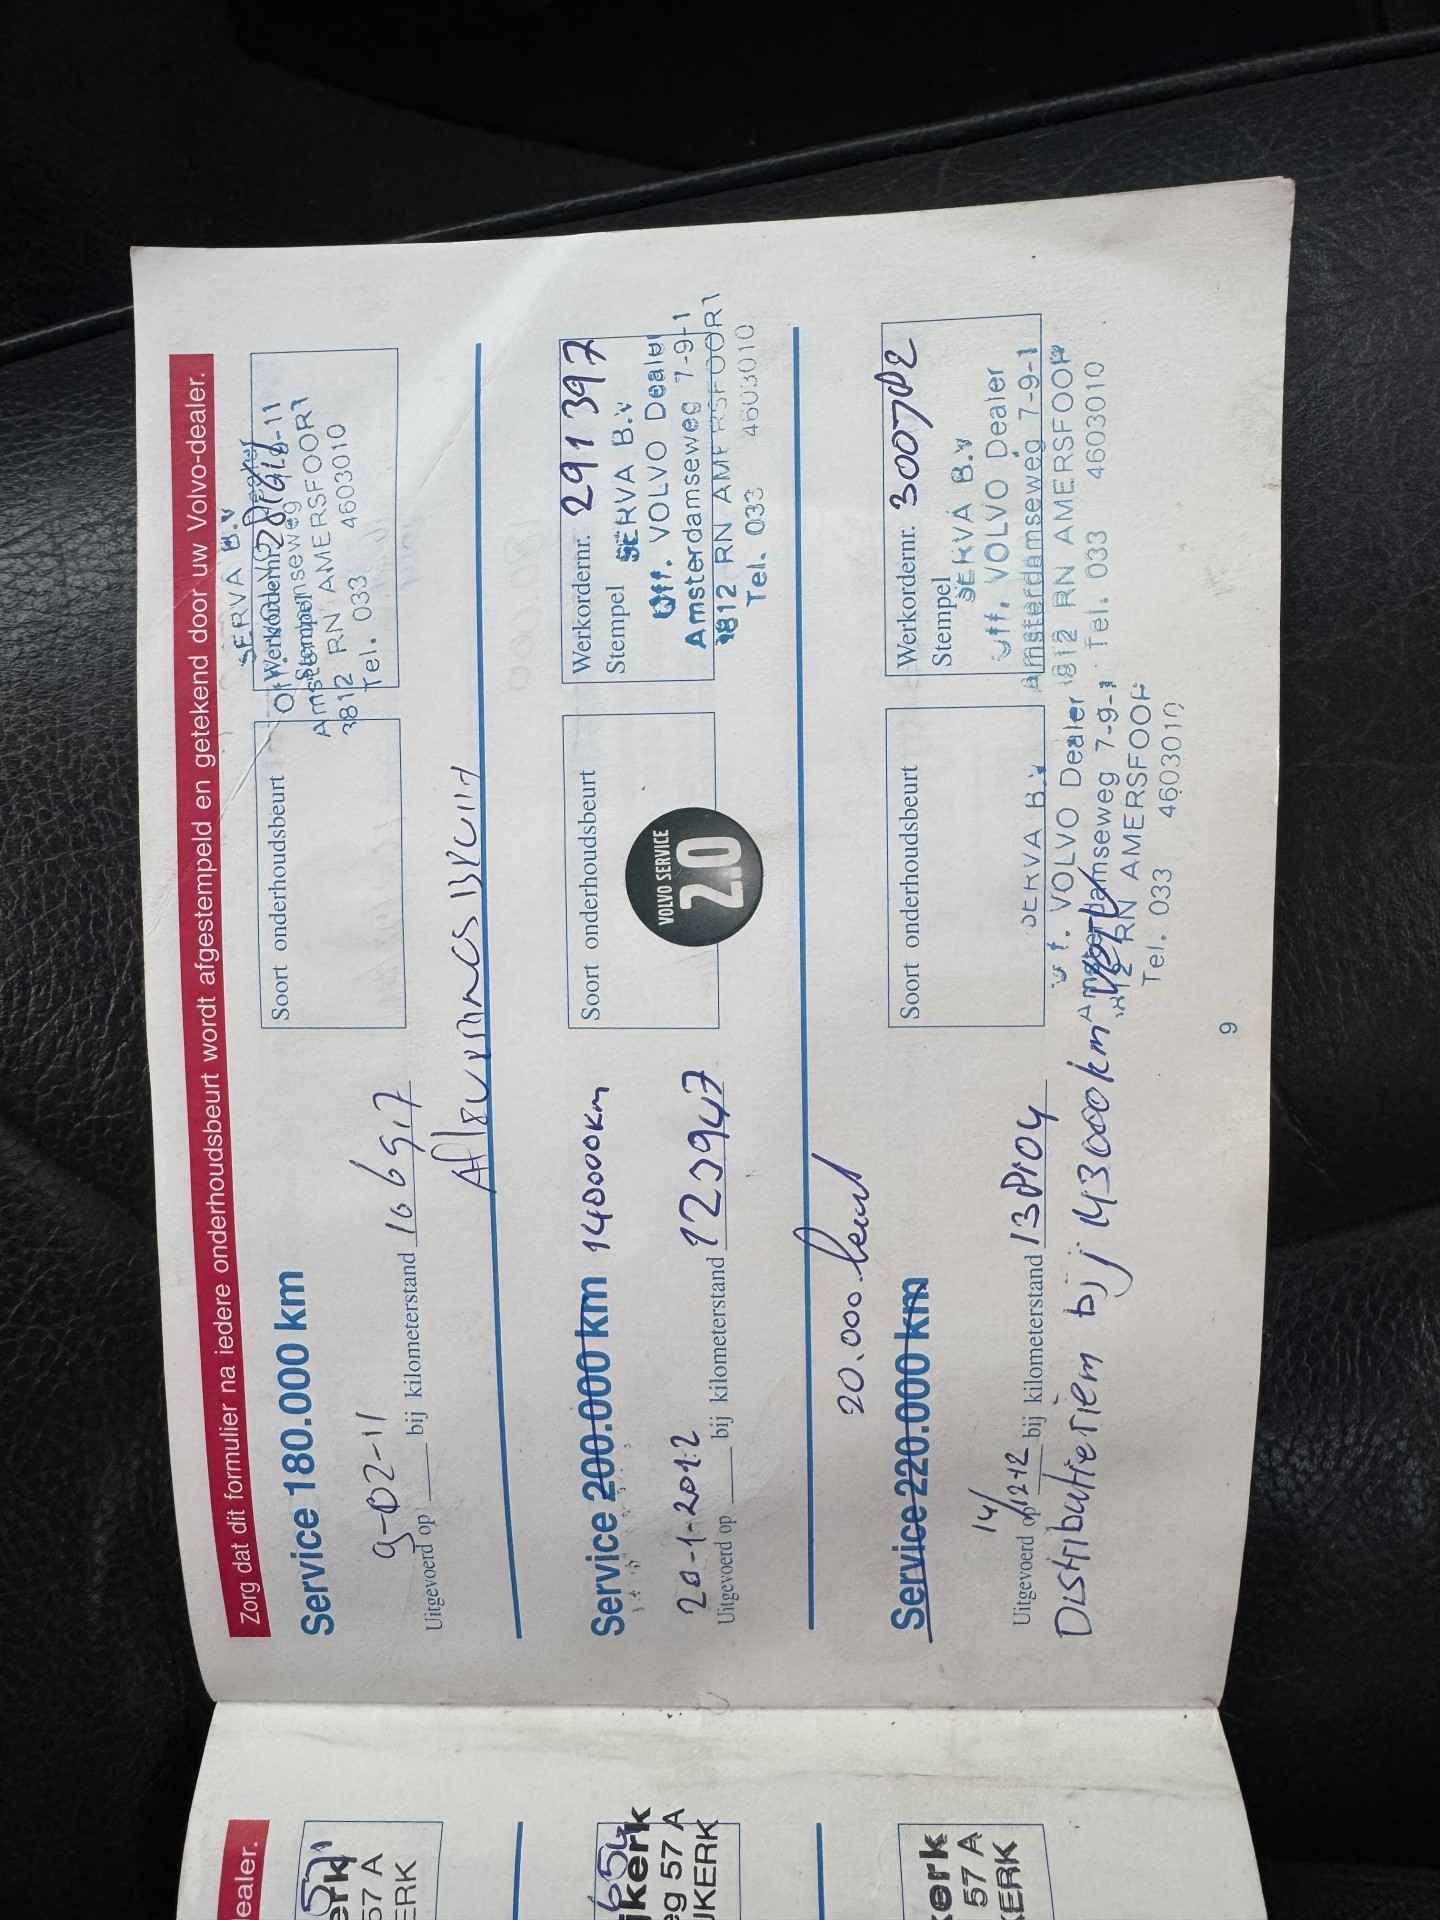 Zorg dat dit formulier na iedere onderhoudsbeurt wordt afgestempeld en getekend door uw Volvo-dealer.
Service 180.000 km
9-02-11
Uitgevoerd op bij kilometerstand
Soort onderhoudsbeurt
Werkordernr.
Stempel
SERVA B.V
Amsterdamseweg
3812 RN AMERSFOORT
Tel. 033 4603010
Service 200.000 km 140000km
20-1-2012
Uitgevoerd op bij kilometerstand
Soort onderhoudsbeurt
VOLVO SERVICE
2.0
Werkordernr. 291397
Stempel
SERVA B.V
Off. VOLVO Dealer
Amsterdamseweg 7-9-1
3812 RN AMERSFOORT
Tel. 033 4603010
20.000 beurt
Service 220.000 km
14/
12-12
Uitgevoerd op bij kilometerstand 138104
Soort onderhoudsbeurt
Werkordernr.
Stempel
SERVA B.V
Off. VOLVO Dealer
Amsterdamseweg 7-9-1
3812 RN AMERSFOOR
Tel. 033 4603010
Distributieriem bij 143000km
SERVA B.V
Off. VOLVO Dealer
Amsterdamseweg 7-9-1
3812 RN AMERSFOOR
Tel. 033 4603010
9
ealer.
erk
57 A
ERK
654
jkerk
eg 57 A
JKERK
kerk
57 A
KERK